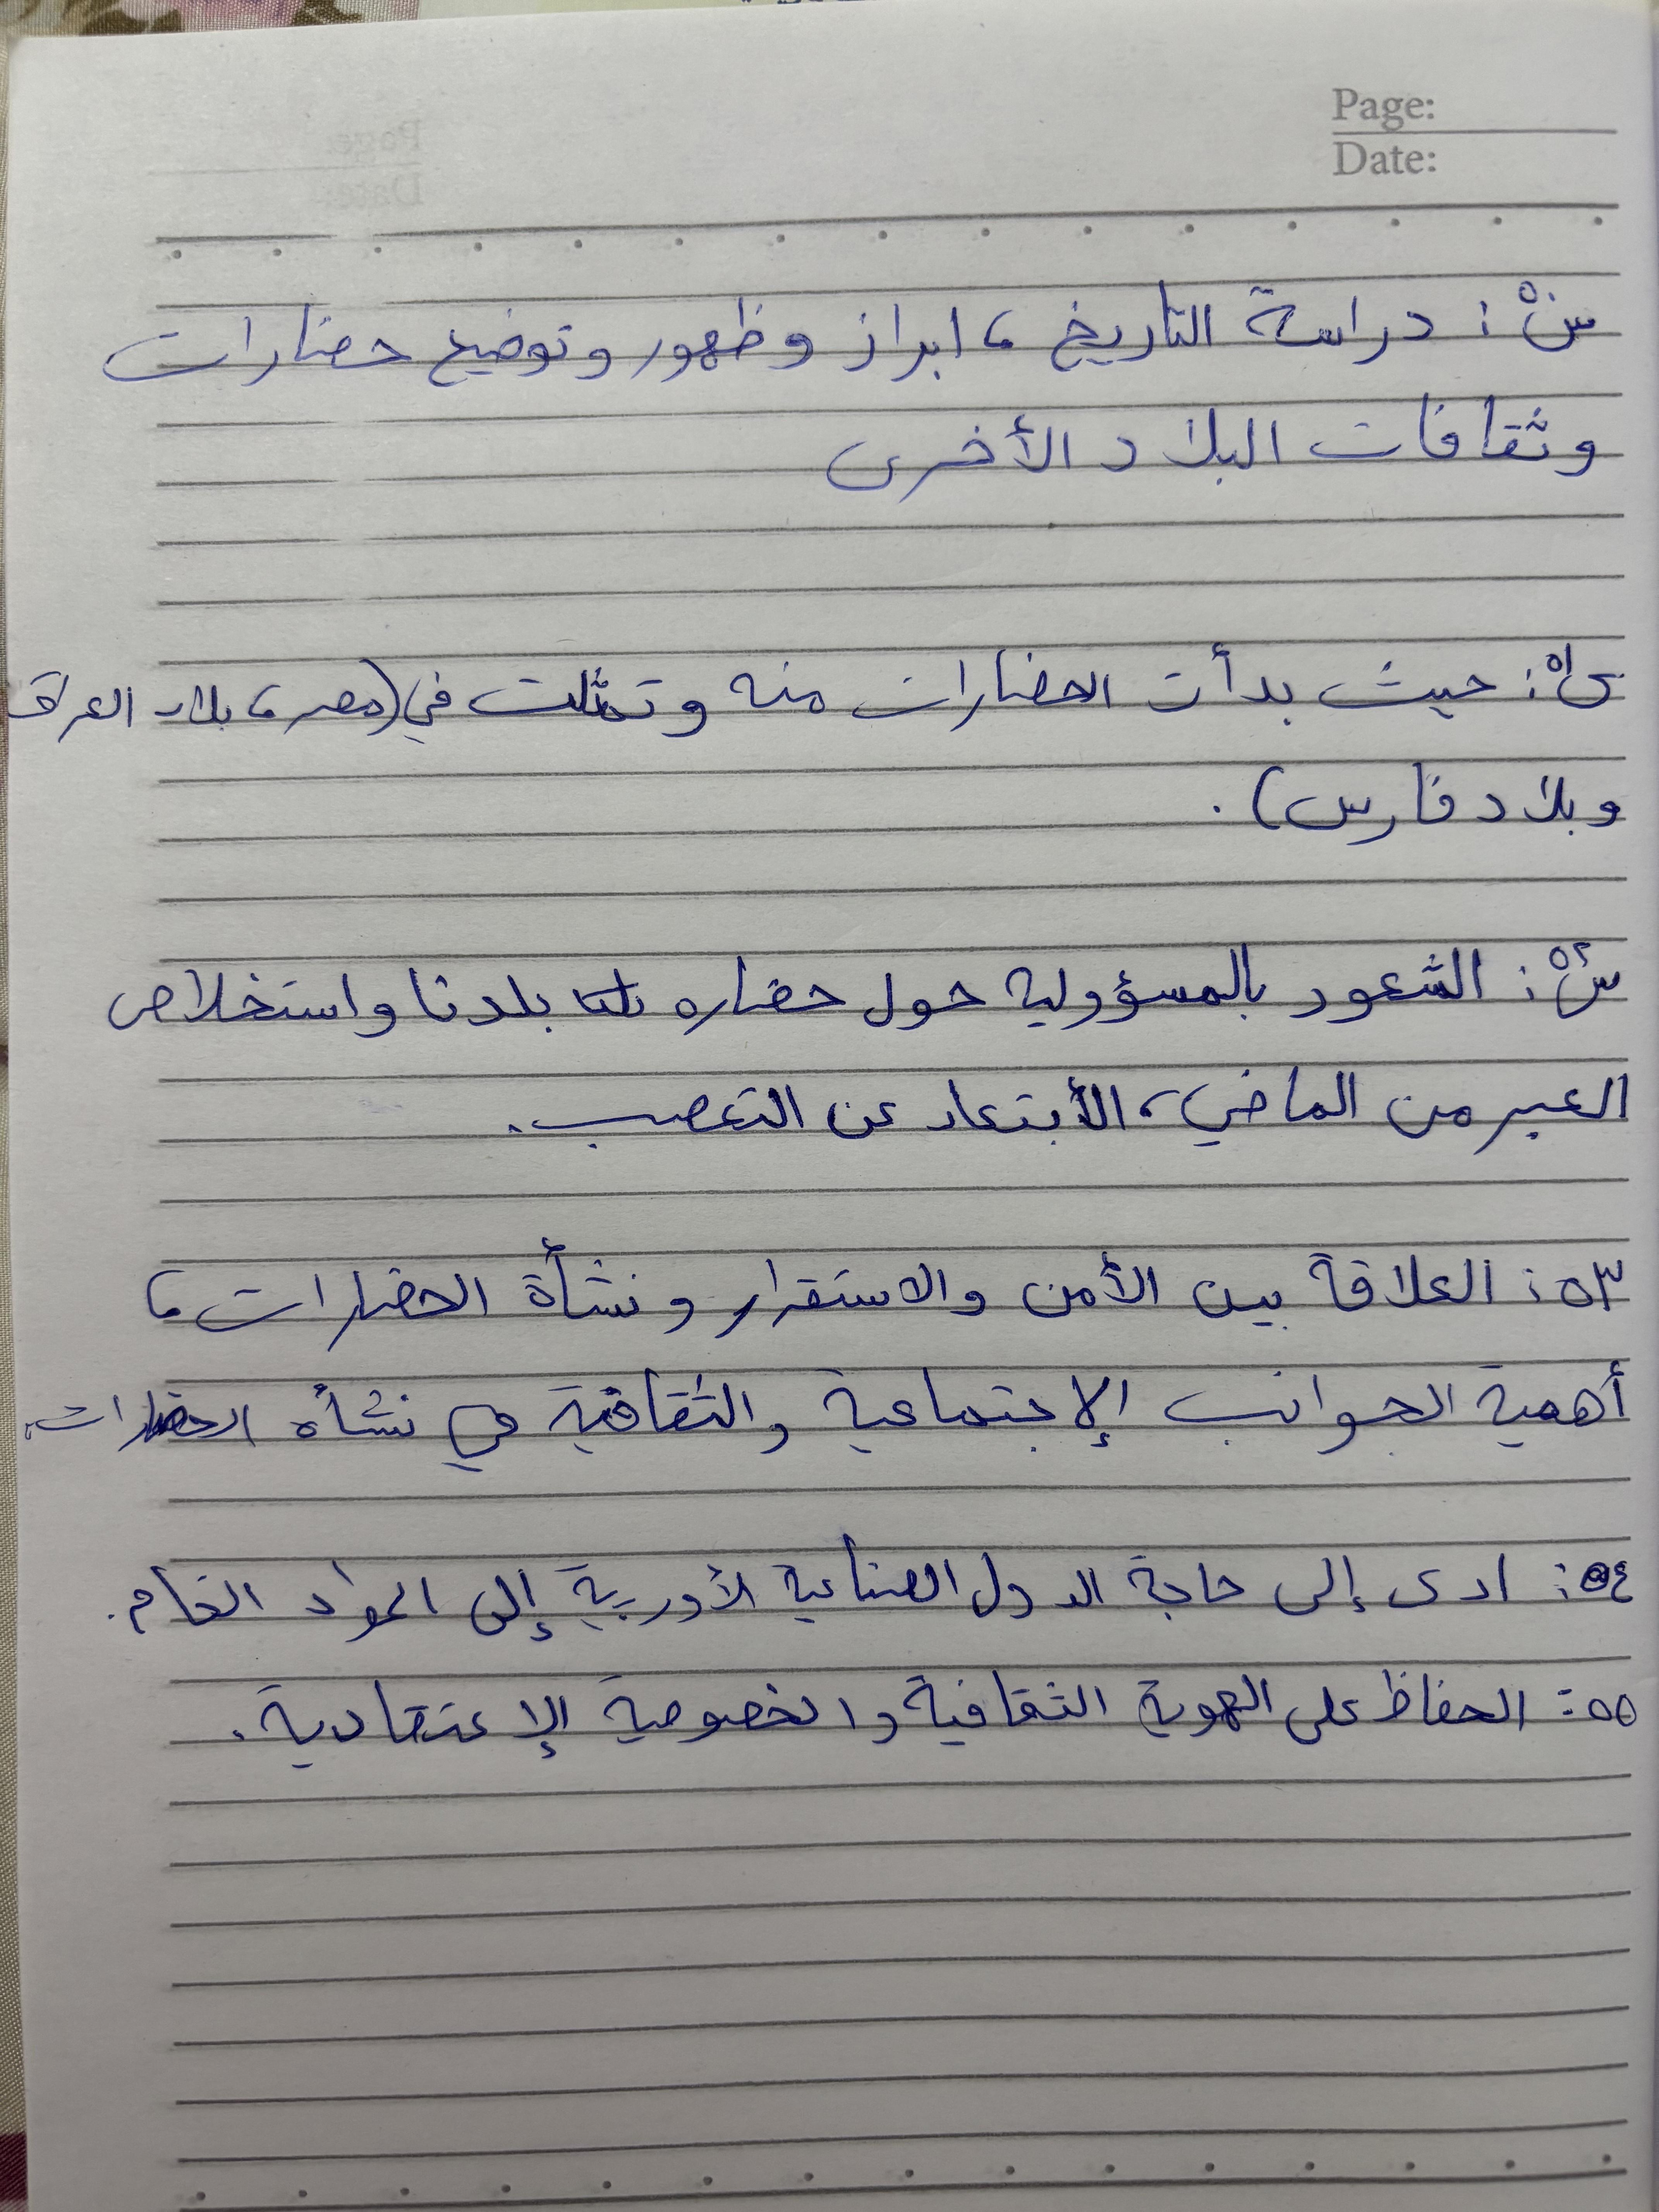 Page:
Date:
س٥٠: دراسة التاريخ، ابراز وظهور وتوضيح حضارات
وثقافات البلاد الأخرى
س٥١: حيث بدأت الحضارات منه وتمثلت في (مصر، بلاد العراق
وبلاد فارس).
س٥٢: الشعور بالمسؤولية حول حضاره بلدنا واستخلاص
العبر من الماضي، الأبتعاد عن التعصب.
٥٣: العلاقة بين الأمن والاستقرار ونشأة الحضارات،
أهمية الجوانب الإجتماعية والثقافية في نشأه الحضارات.
٥٤: ادى إلى حاجة الدول الصناعية الأوربية إلى المواد الخام.
٥٥: الحفاظ على الهوية الثقافية والخصوصية الإعتقادية.